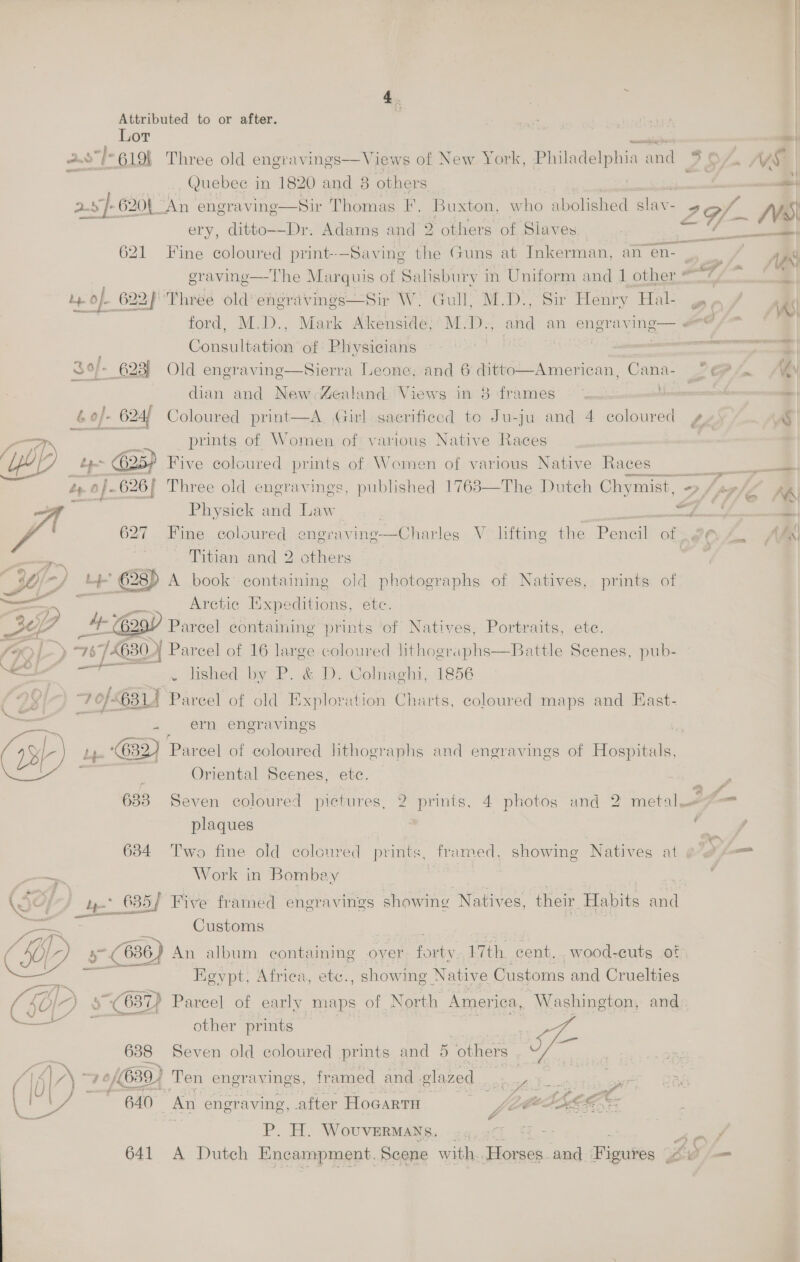 4
Attributed to or after.
LOT
25/- 619 Three old engravings—Views of New York, Philadelphia and 30/- NS
Quebec in 1820 and 3 others
25/- 620 An engraving—Sir Thomas F. Buxton, who abolished slav- 29/- NS
ery, ditto—Dr. Adams and 2 others of Slaves
621 Fine coloured print—Saving the Guns at Inkerman, an en-
graving—The Marquis of Salisbury in Uniform and 1 other
622 Three old engravings—Sir W. Gull, M.D., Sir Henry Hal-
ford, M.D., Mark Akenside, M.D., and an engraving—
Consultation of Physicians
30/- 623 Old engraving—Sierra Leone, and 6 ditto—American, Cana-
dian and New Zealand Views in 3 frames
60/- 624 Coloured print—A Girl sacrificed to Ju-ju and 4 coloured
prints of Women of various Native Races
625 Five coloured prints of Women of various Native Races
626 Three old engravings, published 1763—The Dutch Chymist,
Physick and Law
627 Fine coloured engraving—Charles V lifting the Pencil of
Titian and 2 others
30/- 628 A book containing old photographs of Natives, prints of
Arctic Expeditions, etc.
30/- 629 Parcel containing prints of Natives, Portraits, etc.
630 Parcel of 16 large coloured lithographs—Battle Scenes, pub-
lished by P. & D. Colnaghi, 1856
70/- 631 Parcel of old Exploration Charts, coloured maps and East-
ern engravings
632 Parcel of coloured lithographs and engravings of Hospitals,
Oriental Scenes, etc.
633 Seven coloured pictures, 2 prints, 4 photos and 2 metal
plaques
634 Two fine old coloured prints, framed, showing Natives at
Work in Bombay
635 Five framed engravings showing Natives, their Habits and
Customs
636 An album containing over forty 17th cent. wood-cuts of
Egypt, Africa, etc., showing Native Customs and Cruelties
637 Parcel of early maps of North America, Washington, and
other prints
638 Seven old coloured prints and 5 others 5/-
70/- 639 Ten engravings, framed and glazed
640 An engraving, after HOGARTH
P. H. WOUVERMANS.
641 A Dutch Encampment Scene with Horses and Figures